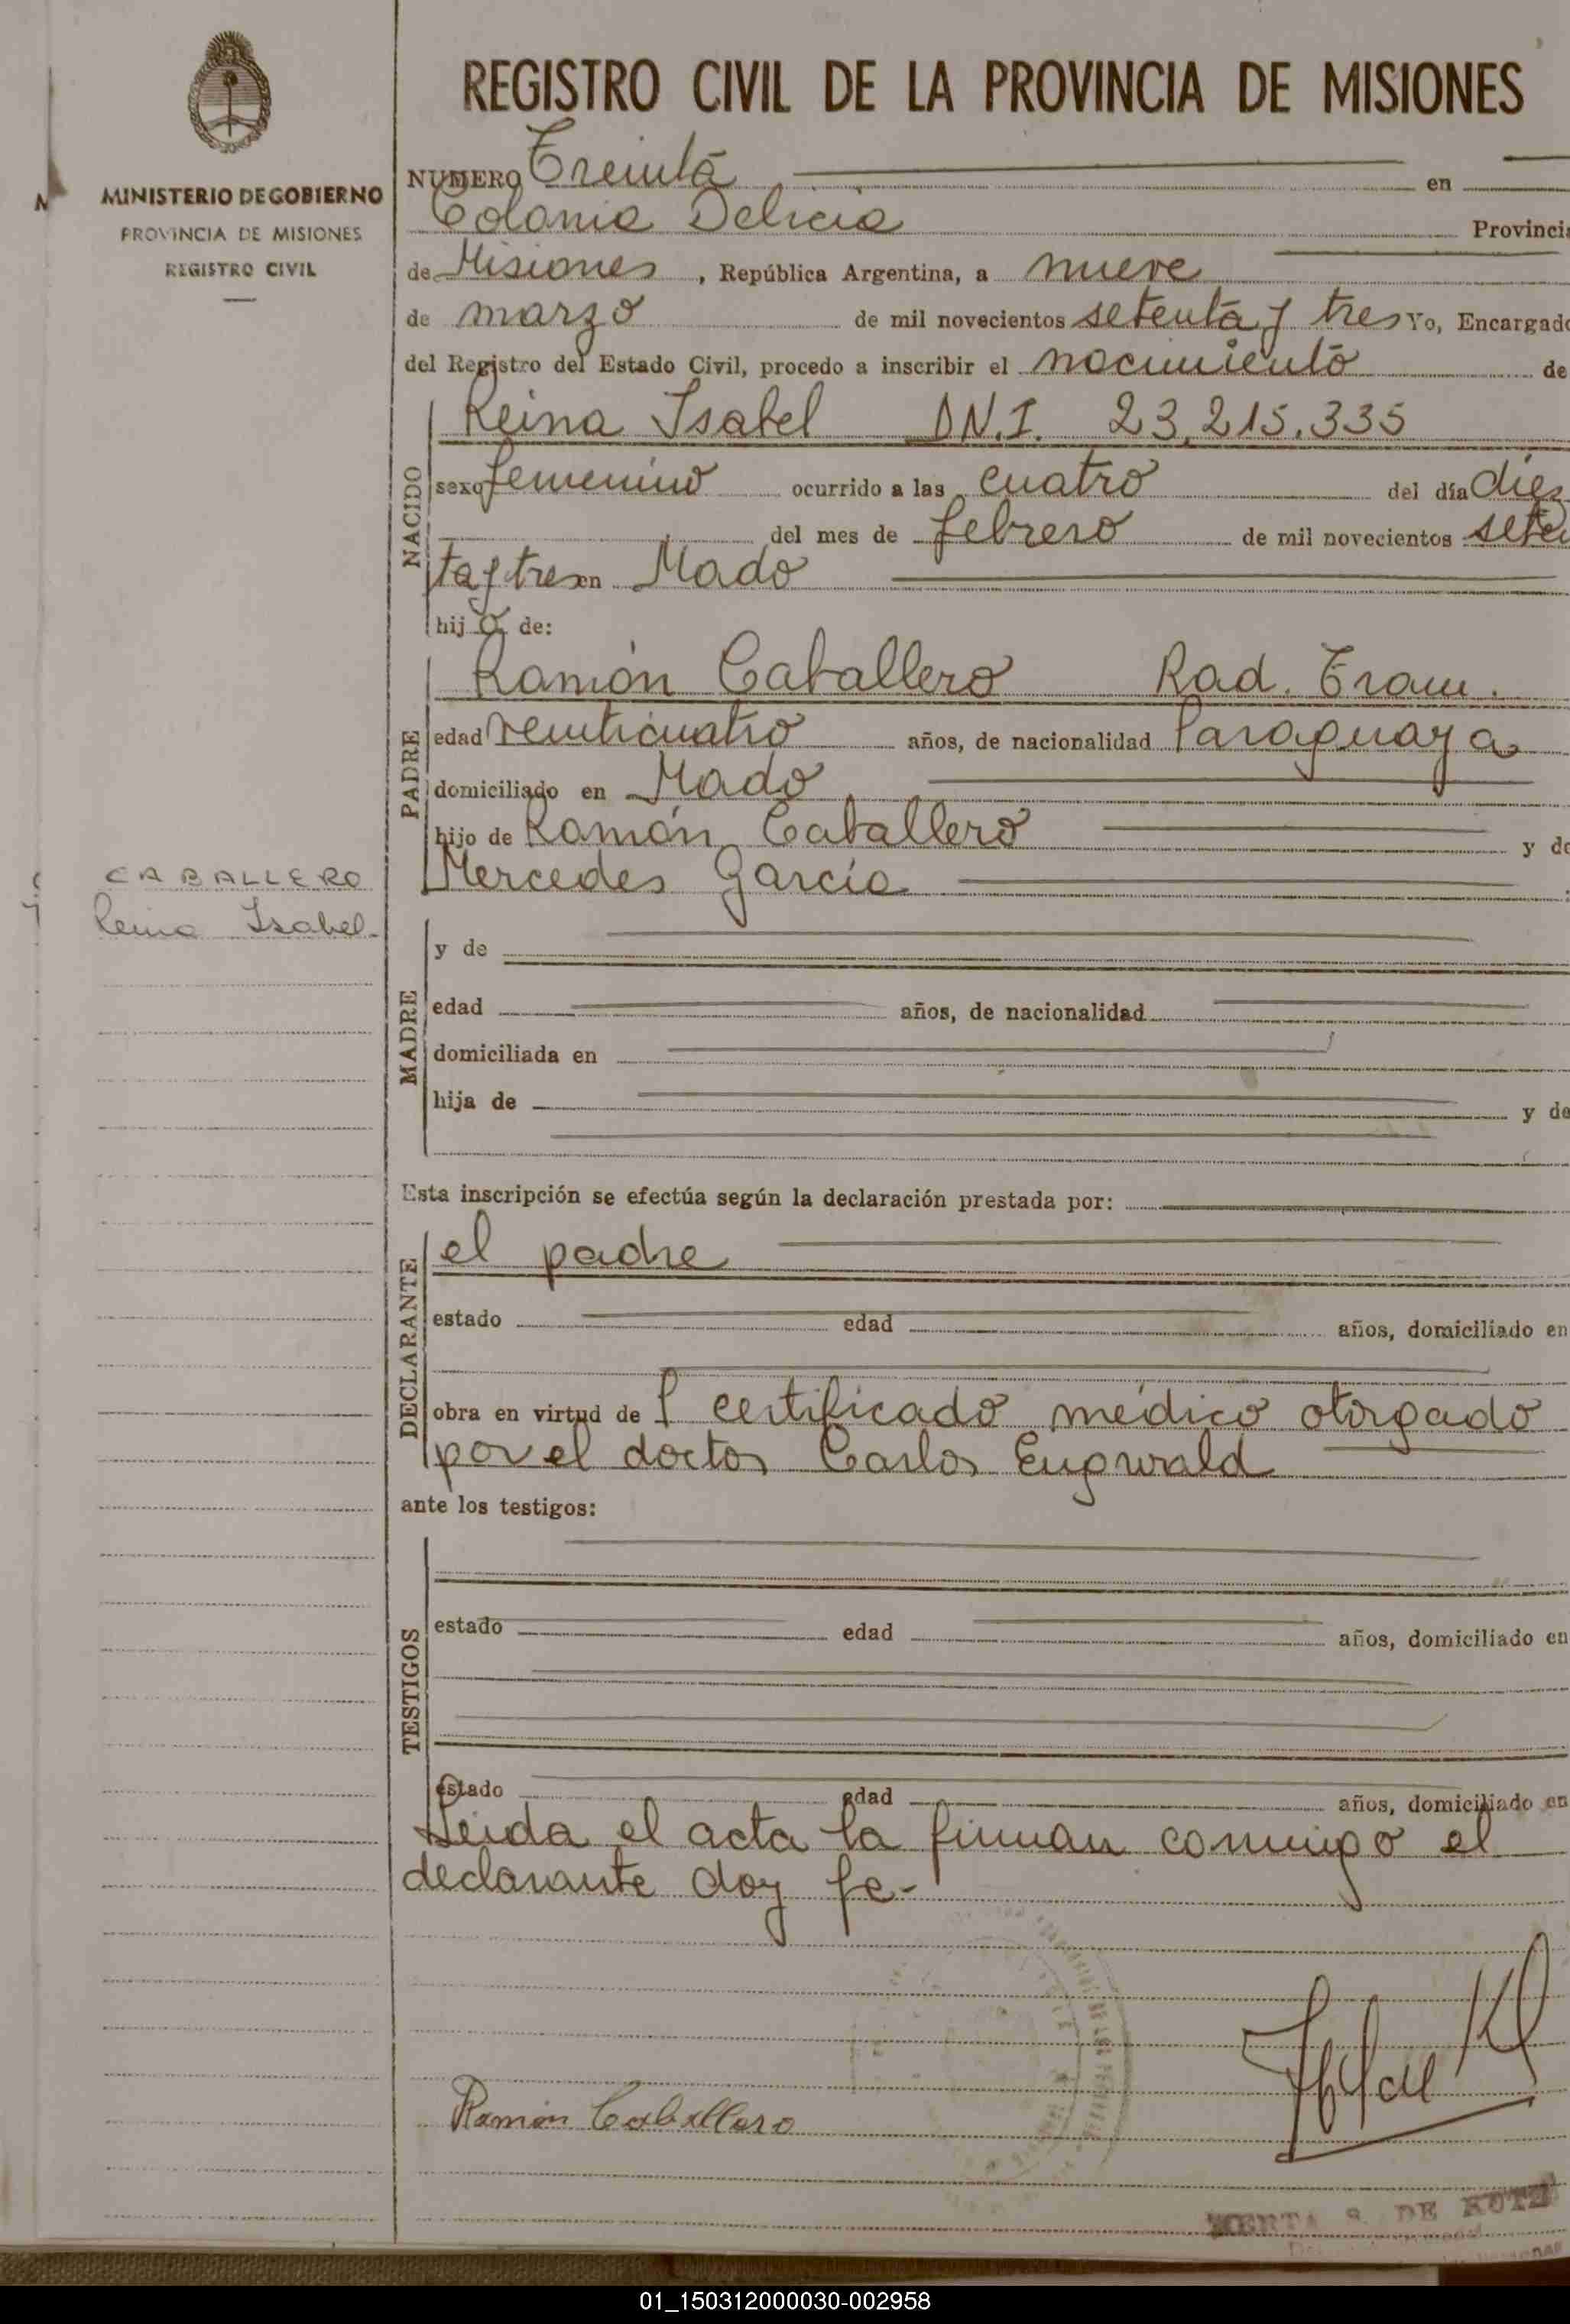 REGISTRO CIVIL DE LA PROVINCIA DE MISIONES
MINISTERIO DE GOBIERNO
PROVINCIA DE MISIONES
REGISTRO CIVIL
CABALLERO
Reina Isabel.
NUMERO Treinta en
Colonia Delicia Provincia
de Misiones, República Argentina, a nueve
de marzo de mil novecientos setenta y tres Yo, Encargado
del Registro del Estado Civil, procedo a inscribir el nacimiento de
NACIDO
Reina Isabel D.N.I. 23.215.335
sexo femenino ocurrido a las cuatro del día diez
del mes de febrero de mil novecientos seten
ta y tres en Mado
hija de:
PADRE
Ramón Caballero Rad. Tram.
edad veinticuatro años, de nacionalidad Paraguaya
domiciliado en Mado
hijo de Ramón Caballero y de
Mercedes García
MADRE
y de
edad años, de nacionalidad
domiciliada en
hija de y de
Esta inscripción se efectúa según la declaración prestada por:
DECLARANTE
el padre
estado edad años, domiciliado en
obra en virtud de l certificado médico otorgado
por el doctor Carlos
ante los testigos:
TESTIGOS
estado edad años, domiciliado en
estado edad años, domiciliado en
Leida el acta la firman conmigo el
declarante doy fe-
Ramón Caballero
S. DE
01_150312000030-002958